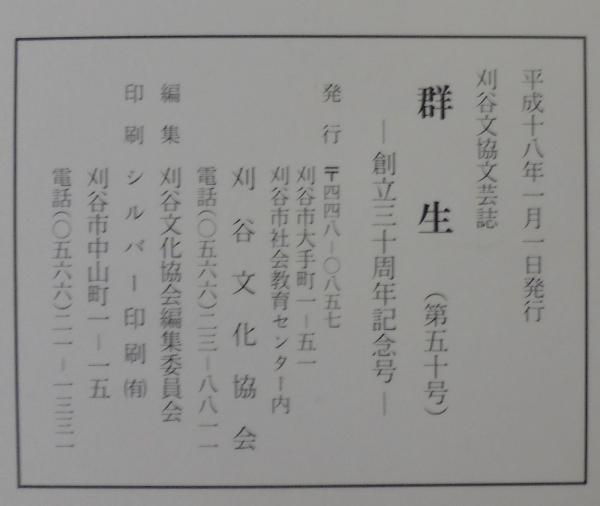 平成十八年一月一日発行
刈谷文協文芸誌
群生（第五十号）
―創立三十周年記念号―
発行 〒四四八―〇八五七
刈谷市大手町一―五一
刈谷市社会教育センター内
刈谷文化協会
電話(〇五六六)二三―八八一一
編集 刈谷文化協会編集委員会
印刷 シルバー印刷㈲
刈谷市中山町一―一五
電話(〇五六六)二一―一三三一